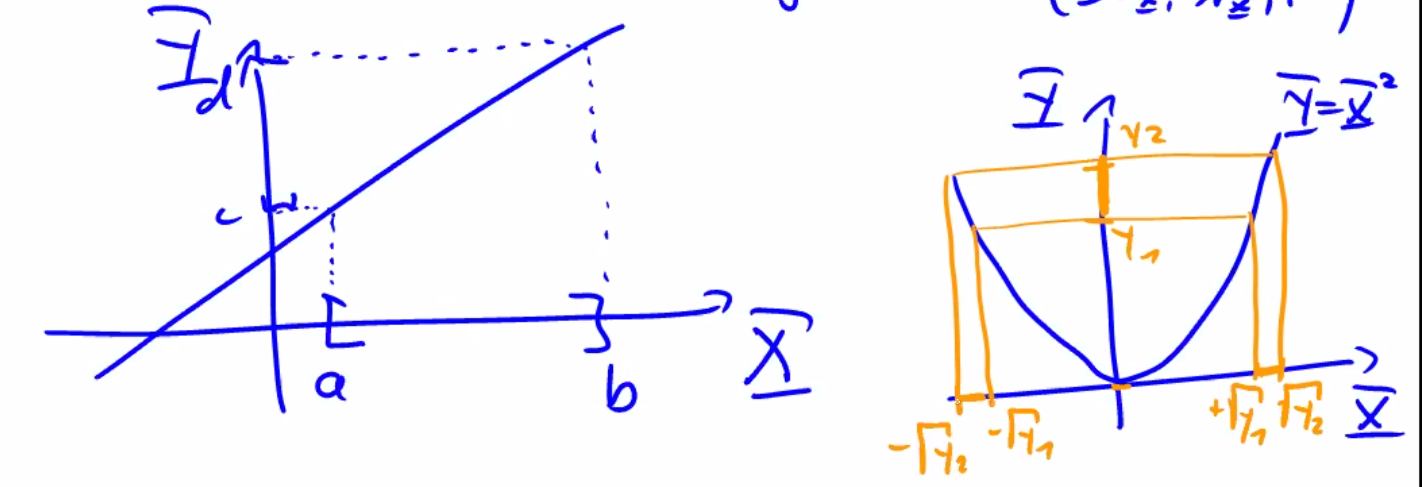 Y
d
c
a
b
X
Y
Y=X²
y2
y1
-√y2
-√y1
+√y1
√y2
X